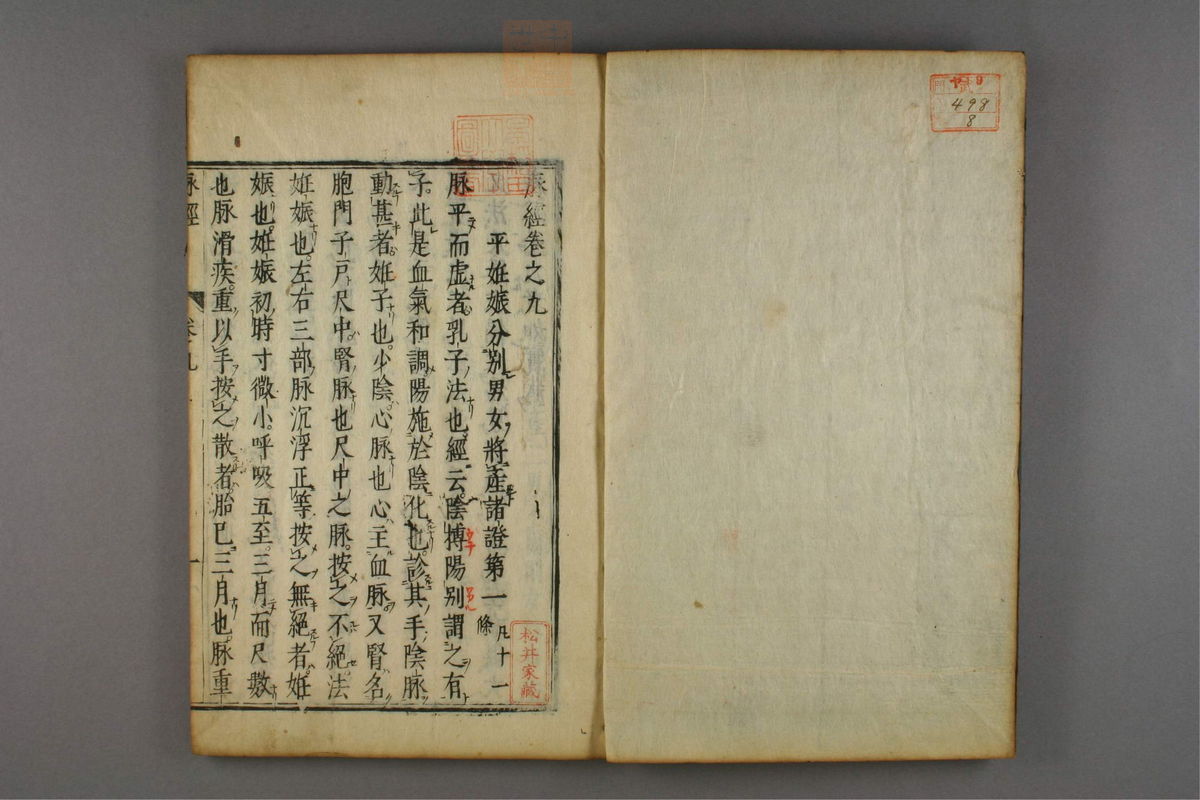 脉經卷之九
平妊娠分別男女將產諸證第一 凡十一條
脉平而虛者乳子法也經云陰搏陽別謂之有
子此是血氣和調陽施於陰化也診其手陰脉
動甚者妊子也少陰心脉也心主血脉又腎名
胞門子戸尺中腎脉也尺中之脉按之不絕法
妊娠也左右三部脉沉浮正等按之無絕者妊
娠也妊娠初時寸微小呼吸五至三月而尺數
也脉滑疾重以手按之散者胎已三月也脉重
脉經 卷九 一
松井家藏
498
8